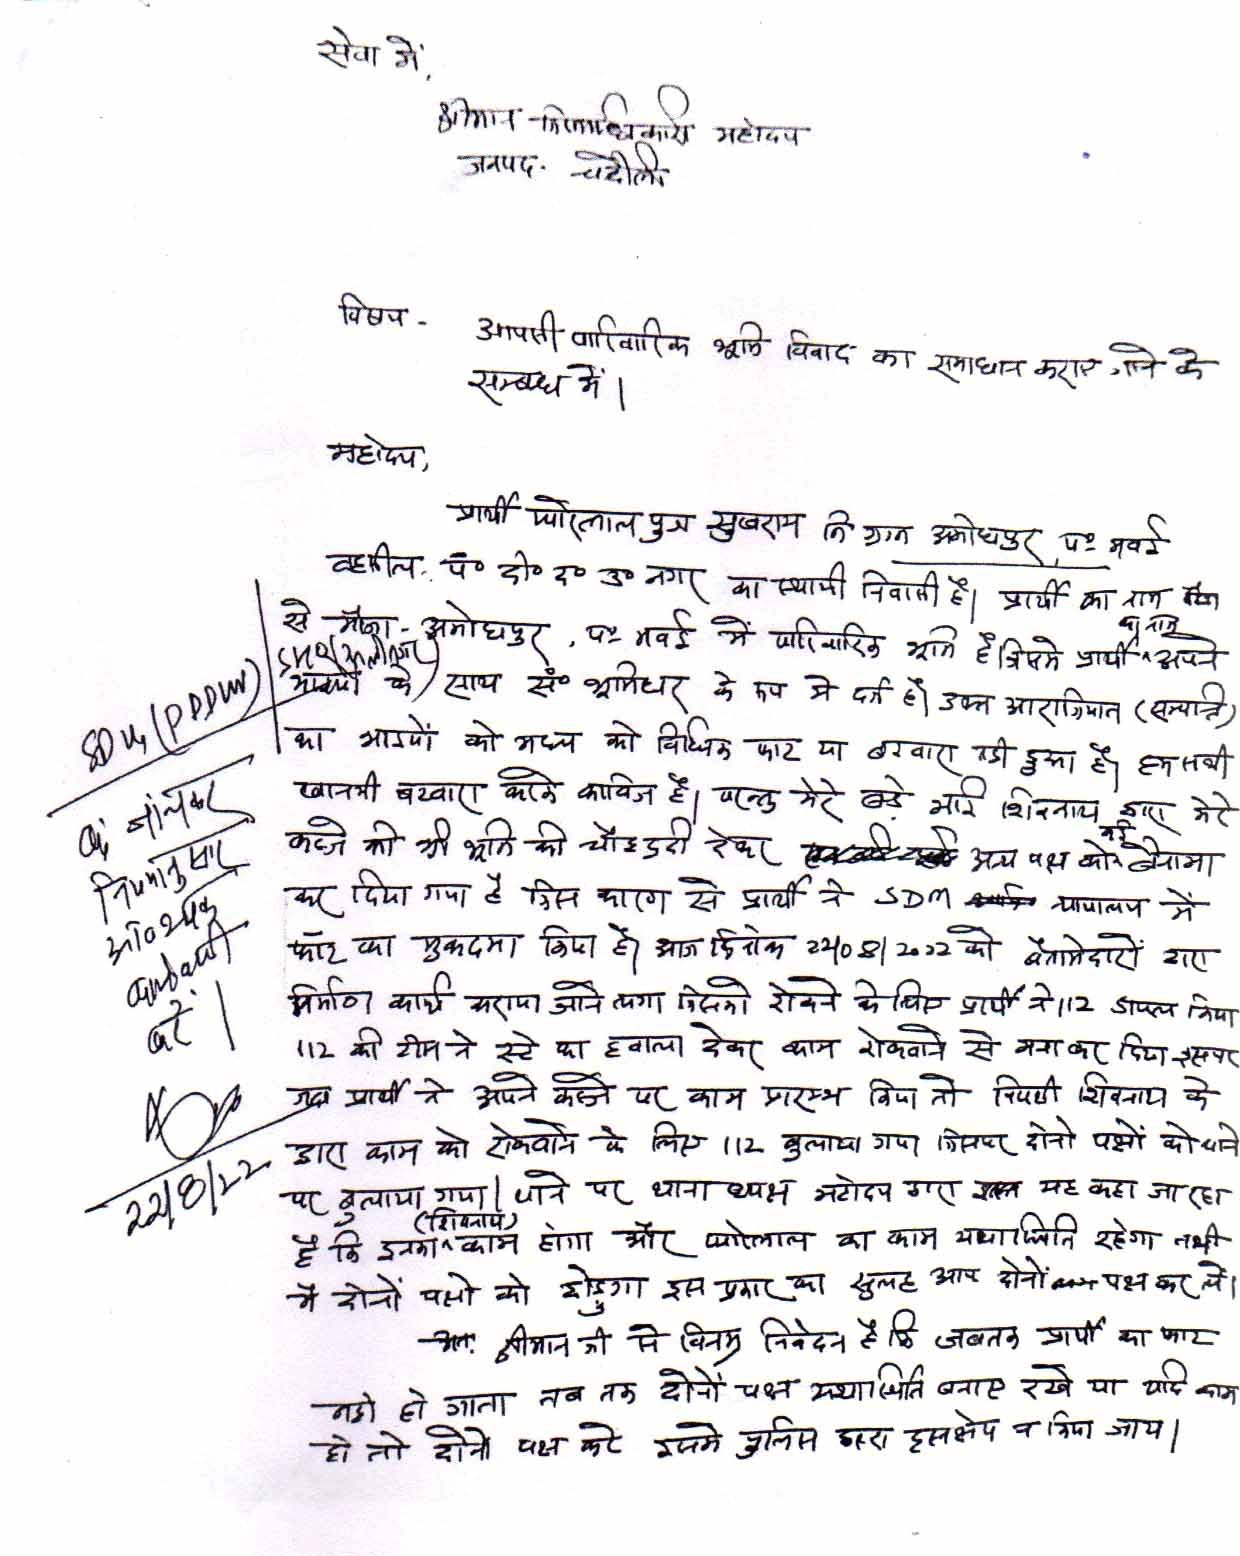 सेवा में,
श्रीमान जिलाधिकारी महोदय
जनपद- चंदौली
विषय - आपसी पारिवारिक भूमि विवाद का समाधान कराए जाने के
सम्बन्ध में।
महोदय,
प्रार्थी प्यारेलाल पुत्र सुखराम नि ग्राम अमोघपुर, प० मवई
तहसील- पं० दी० द० उ० नगर का स्थायी निवासी है। प्रार्थी का नाम
से मौजा - अमोघपुर, प० मवई में पारिवारिक भूमि है जिसमे प्रार्थी का नाम अपने
भाइयों के साथ सं० भूमिधर के रूप मे दर्ज है। उक्त आराजियात (सम्पत्ति)
का भाइयों को मध्य को विधिक फाट या बटवारा नही हुआ है। हम सभी
खानगी बटवारा करके काबिज है। परन्तु मेरे बड़े भाई शिवनाथ द्वारा मेरे
कब्जे की भी भूमि की चौहद्दी देकर अन्य पक्ष को कई बैनामा
कर दिया गया है जिस कारण से प्रार्थी ने SDM न्यायालय में
फॉट का मुकदमा किया है। आज दिनांक 22/08/2022 को बैनामेदारों द्वारा
निर्माण कार्य कराया जाने लगा जिसको रोकने के लिए प्रार्थी ने 112 डायल किया
112 की टीम ने स्टे का हवाला देकर काम रोकवाने से मना कर दिया इसपर
जब प्रार्थी ने अपने कब्जे पर काम प्रारम्भ किया तो विपक्षी शिवनाथ के
द्वारा काम को रोकवाने के लिए 112 बुलाया गया जिसपर दोनो पक्षों को थाने
पर बुलाया गया। थाने पर थानाध्यक्ष महोदय द्वारा यह कहा जा रहा
है कि इनका (शिवनाथ) काम होगा और प्यारेलाल का काम यथास्थिति रहेगा तभी
मैं दोनों पक्षो को छोडुगा इस प्रकार का सुलह आप दोनों पक्ष कर लें।
अतः श्रीमान जी से विनम्र निवेदन है कि जबतक प्रार्थी का फाट
नही हो जाता तब तक दोनों पक्ष यथास्थिति बनाए रखे या यदि काम
हो तो दोनो पक्ष करे इसमे पुलिस द्वारा हस्तक्षेप न किया जाय।
SDM (PDDUN)
SHO/अलीनगर
कृ० जांचकर
नियमानुसार
आवश्यक
कार्यवाही
करें।
22/8/22